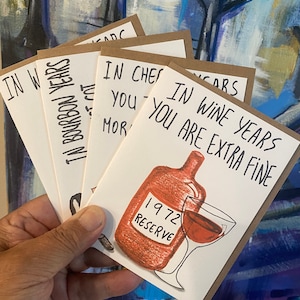 YEARS
IN W
IN BOURBON YEARS
IN CHEE
YEARS
YOU
MOR
IN WINE YEARS
YOU ARE EXTRA FINE
1972
RESERVE